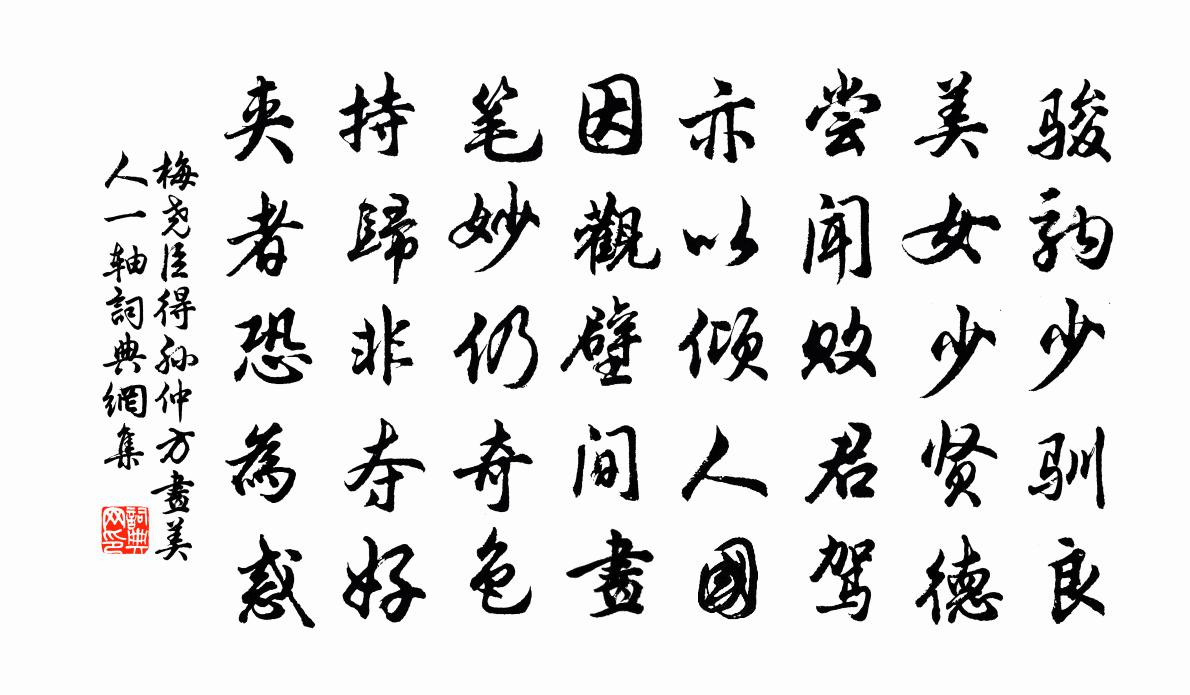 骏驹少驯良
美女少贤德
尝闻败君驾
亦以倾人國
因觀壁间畫
笔妙仍奇色
持歸非夺好
夹者恐為惑
梅尧臣得孙仲方畫美
人一轴詞典網集
詞典
网印